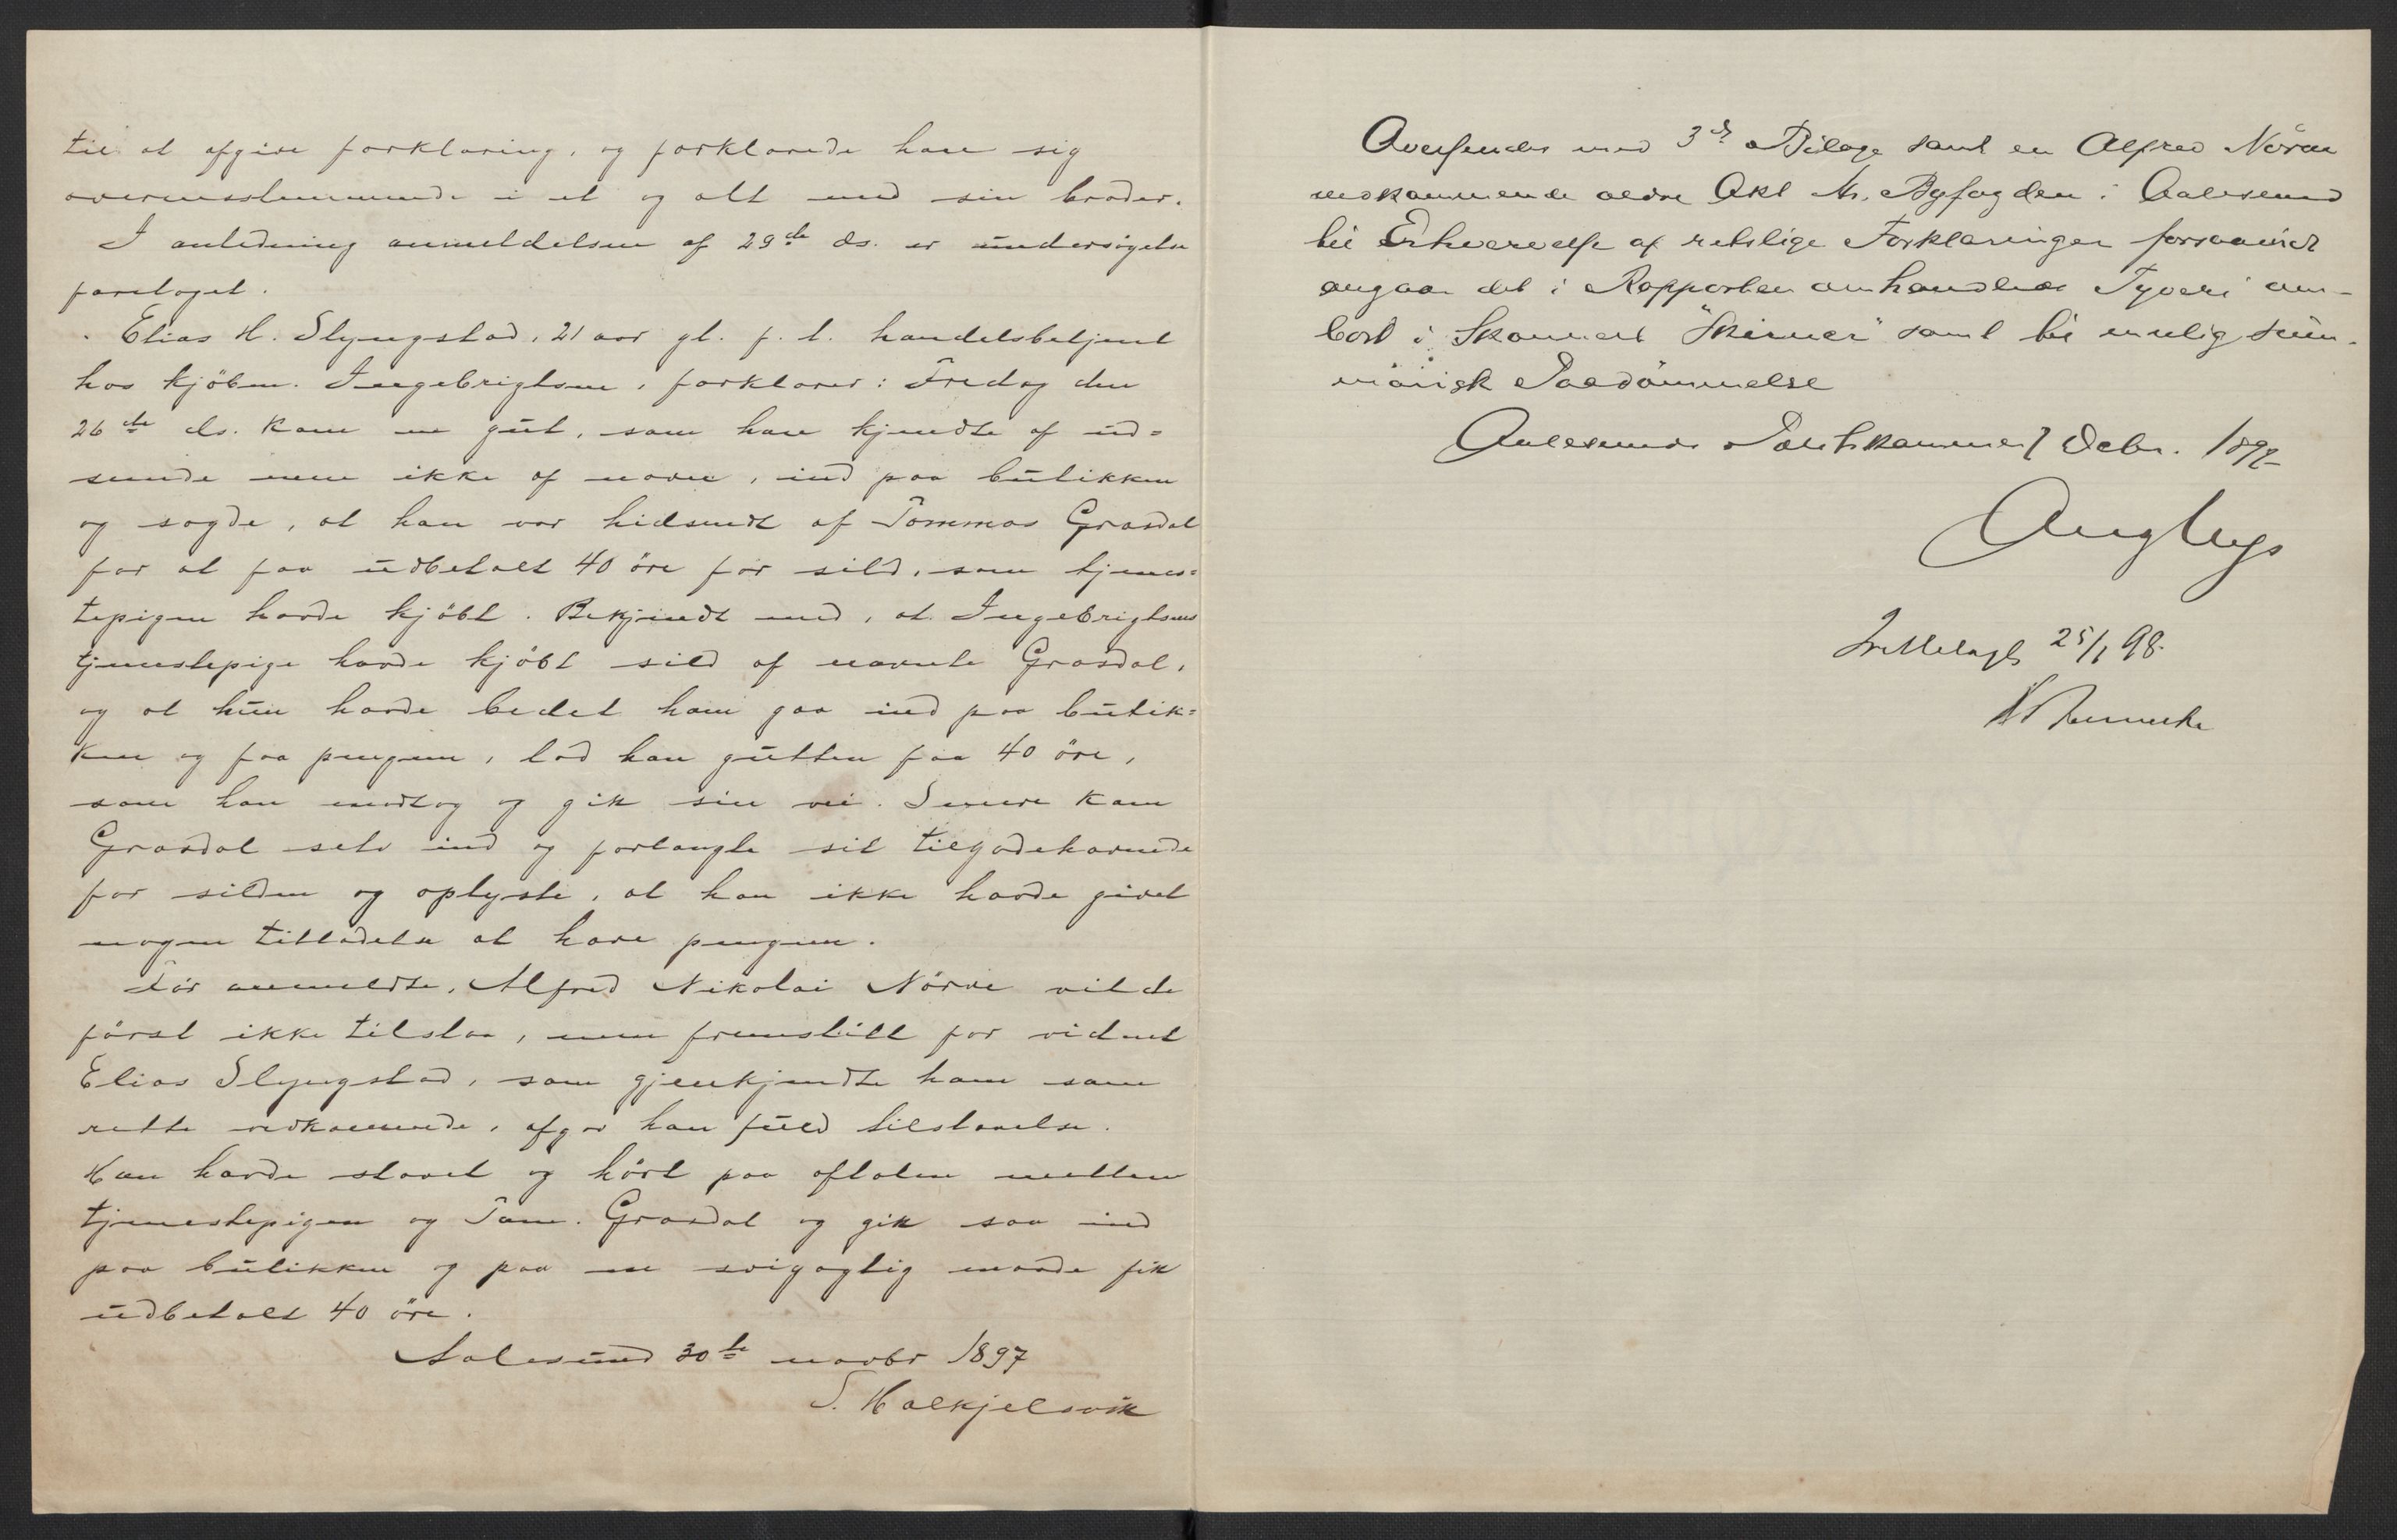 til at afgive forklaring, og forklarede han sig
overensstemmende i et og alt med sin broder.
I anledning anmeldelsen af 29de ds. er undersögelse
foretaget.
Elias H. Slyngstad, 21 aar gl. f. t. handelsbetjent
hos kjöbm. Ingebrigtsen, forklarer: Fredag den
26de ds. kom en gut, som han kjendte af ud=
seende men ikke af navn, ind paa butikken
og sagde, at han var hidsendt af Tommas Grasdal
for at faa udbetalt 40 öre for sild, som tjenes=
tepigen havde kjöbt. Bekjendt med, at Ingebrigtsens
tjenestepige havde kjöbt sild af nævnte Grasdal,
og at hun havde bedet ham gaa ind paa butik=
ken og faa pengene, lod han gutten faa 40 öre,
som han modtog og gik sin vei. Senere kom
Grasdal selv ind og forlangte sit tilgodehavende
for silden og oplyste, at han ikke havde givet
nogen tilladelse at have pengene.
För anmeldte, Alfred Nikolai Nörve vilde
först ikke tilstaa, men fremstillt for vidnet
Elias Slyngstad, som gjenkjendte ham som
rette vedkommende, afgav han fuld tilstaaelse.
Han havde staaet og hört paa aftalen mellem
tjenestepigen og Tom. Grasdal og gik saa ind
paa butikken og paa en svigagtig maade fik
udbetalt 40 öre.
Aalesund 30te novbr 1897
S. Halkjelsvik
Oversendes med 3de Bilage samt en Alfred Nörve
vedkommende ældre Akt Hr. Byfogden i Aalesund
til Erhvervelse af retslige Forklaringer forsaavidt
angaar det i Rapporten omhandlede Tyveri om-
bord i Skonnert "Skirner" samt til mulig sum-
marisk Paadömmelse
Aalesunds Politikammer 7 Decbr. 1897
Fremlagt 25/1 98.